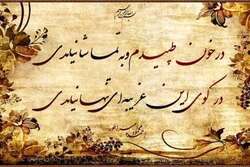 در خون طپیدم و به تماشا نیامدی
در کوی این غریبه‌ای تنها نیامدی